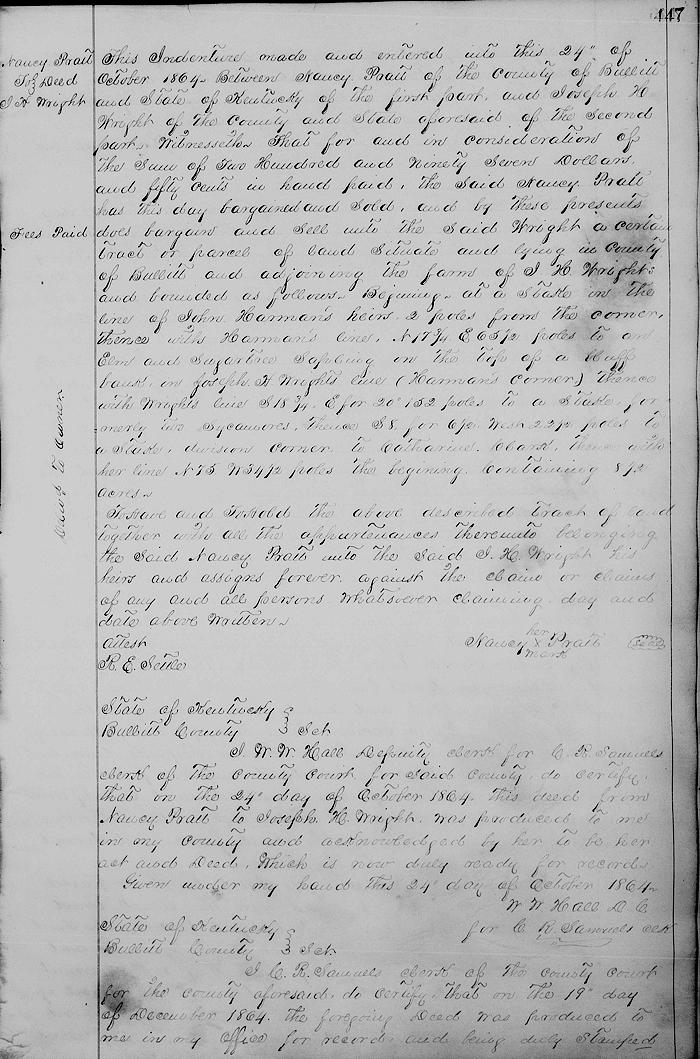 447
Nancy Pratt
To} Deed
J H Wright
Fees Paid
This Indenture made and entered into this 24" of
October 1864. Between Nancy Pratt of the county of Bullitt
and State of Kentucky of the first part, and Joseph H
Wright of the County and State aforesaid of the Second
part, Witnesseth. That for and in consideration of
the Sum of Two Hundred and Ninety Seven Dollars,
and fifty cents in hand paid, the Said Nancy Pratt
has this day bargained and Sold, and by these presents
does bargain and Sell unto the Said Wright a certain
tract or parcel of land Situate and lying in County
of Bullitt and adjoining the farm of J. H. Wright
and bounded as follows. Begining. at a Stake in the
line of John Harman's heirs. 2 poles from the corner,
thence with Harman's line, N 17 3/4 E 65 1/2 poles to an
Elm and Sugartree Sapling on the top of a bluff
bank, in Joseph H Wrights line (Harman's corner) thence
with Wrights line S 18 3/4 E for 20" 152 poles to a Stake, for
merly two Sycamores, thence S 8 for 6 1/2 West 22 1/2 poles to
a Stake, division corner to Catharine Clark, thence with
her line N 75 W 34 1/2 poles the begining. Containing 8 1/2
acres.
To have and To hold the above described tract of land
together with all the appurtenances thereunto belonging
the Said Nancy Pratt unto the Said J. H. Wright his
heirs and assigns forever against the claim or claims
of any and all persons whatsoever claiming. day and
date above Written.
attest
Nancy her X mark Pratt seal
R. E. Settle
State of Kentucky }
Bullitt County } Sct
I W. W Hall Deputy clerk for C. R. Samuels
clerk of the county court for Said county, do certify,
that on the 24" day of October 1864. this deed from
Nancy Pratt to Joseph H. Wright, was produced to me
in my county and acknowledged by her to be her
act and Deed, Which is now duly ready for record.
Given under my hand this 24" day of October 1864.
W W Hall D. C.
for C. R. Samuels clk
State of Kentucky }
Bullitt County } Sct.
I C. R. Samuels clerk of the county court
for the county aforesaid, do certify, that on the 19" day
of December 1864. the foregoing Deed was produced to
me in my office for record, and being duly Stamped